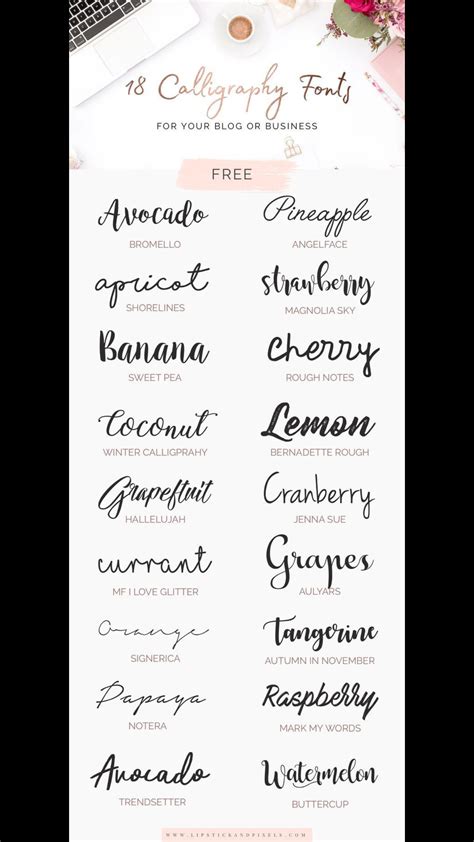 18 Calligraphy Fonts
FOR YOUR BLOG OR BUSINESS
FREE
Avocado Pineapple
BROMELLO ANGELFACE
apricot strawberry
SHORELINES MAGNOLIA SKY
Banana Cherry
SWEET PEA ROUGH NOTES
Coconut Lemon
WINTER CALLIGPRAHY BERNADETTE ROUGH
Grapefruit Cranberry
HALLELUJAH JENNA SUE
currant Grapes
MF I LOVE GLITTER AULYARS
Orange Tangerine
SIGNERICA AUTUMN IN NOVEMBER
Papaya Raspberry
NOTERA MARK MY WORDS
Avocado Watermelon
TRENDSETTER BUTTERCUP
WWW.LIPSTICKANDPIXELS.COM